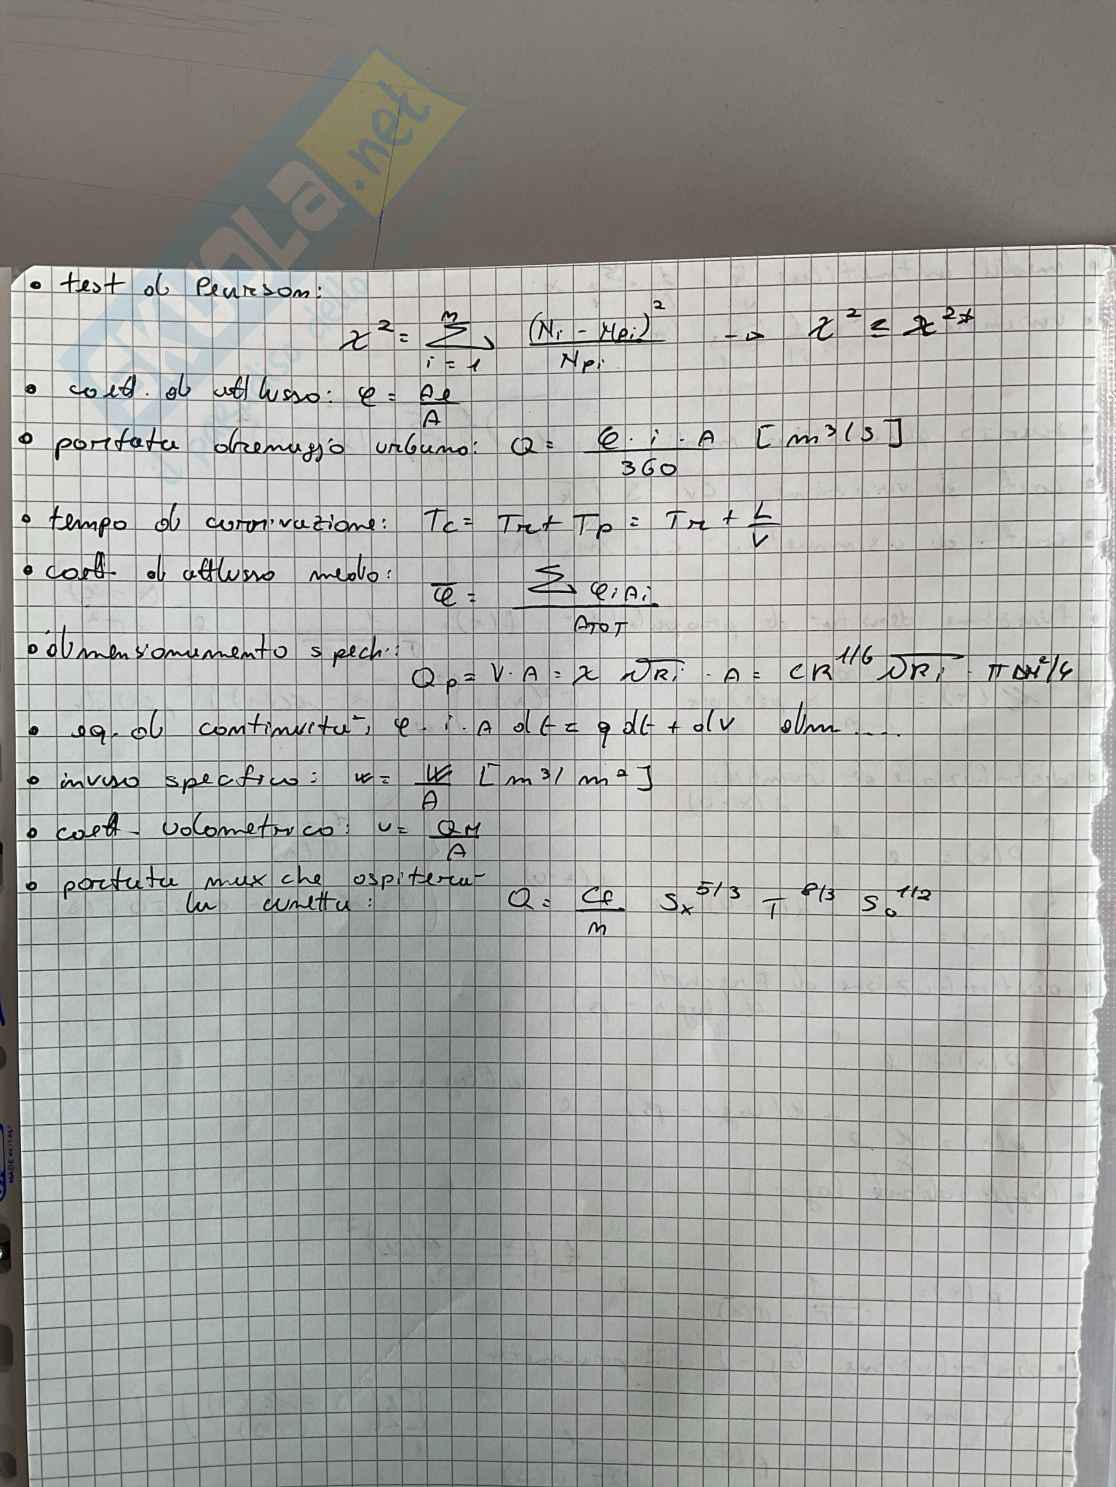 SKUOLA.net
• test di Pearson:
χ² = Σ (i = 1, m) (Ni - Npi)² / Npi → χ² ≤ χ²*
• coeff. di afflusso: φ = Ae / A
• portata drenaggio urbano: Q = φ · i · A / 360 [m³/s]
• tempo di corrivazione: Tc = Tr + Tp = Tr + L / V
• coeff. di afflusso medio: φ̄ = Σ φi Ai / ATOT
• dimensionamento spech.:
Qp = V · A = χ √Ri · A = cR^1/6 √Ri · π DN²/4
• eq. di continuità, φ · i · A dt = q dt + dv dim....
• invaso specifico: w = W / A [m³/m²]
• coeff. volometrico: u = QM / A
• portata max che ospiterà
la cunetta: Q = Cf / n Sx^5/3 T^8/3 So^1/2